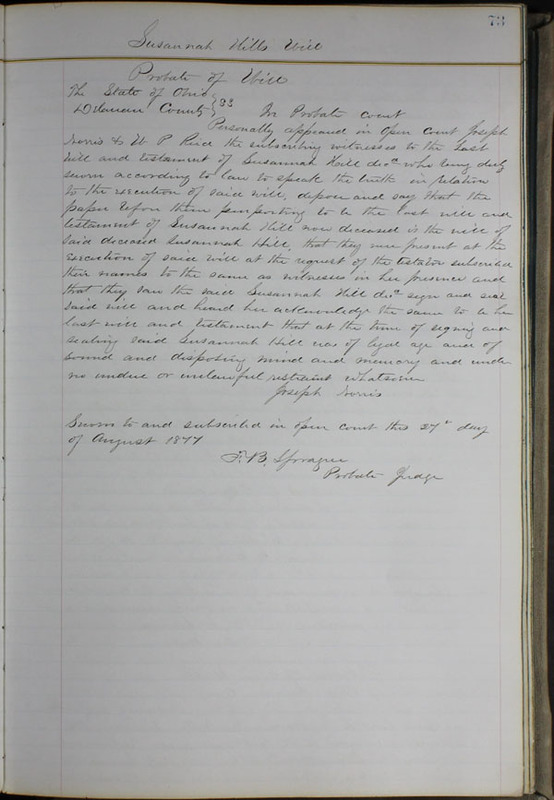 73
Susannah Hills Will
Probate of Will
The State of Ohio
Delaware County } SS In Probate Court
Personally appeared in open Court Joseph
Norris & W P Reid the subscribing witnesses to the Last
Will and testament of Susannah Hill decd who being duly
sworn according to law to speak the truth in relation
to the execution of said will, depose and say that the
paper before them purporting to be the last will and
testament of Susannah Hill now deceased is the will of
said deceased Susannah Hill, that they were present at the
execution of said will at the request of the testator subscribed
their names to the same as witnesses in her presence and
that they saw the said Susannah Hill decd sign and seal
said will and heard her acknowledge the same to be her
last will and testament that at the time of signing and
sealing said Susannah Hill was of legal age and of
sound and disposing mind and memory and under
no undue or unlawful restraint whatsoever
Joseph Norris
Sworn to and subscribed in open court this 27th day
of August 1877
F. B. Sprague
Probate Judge